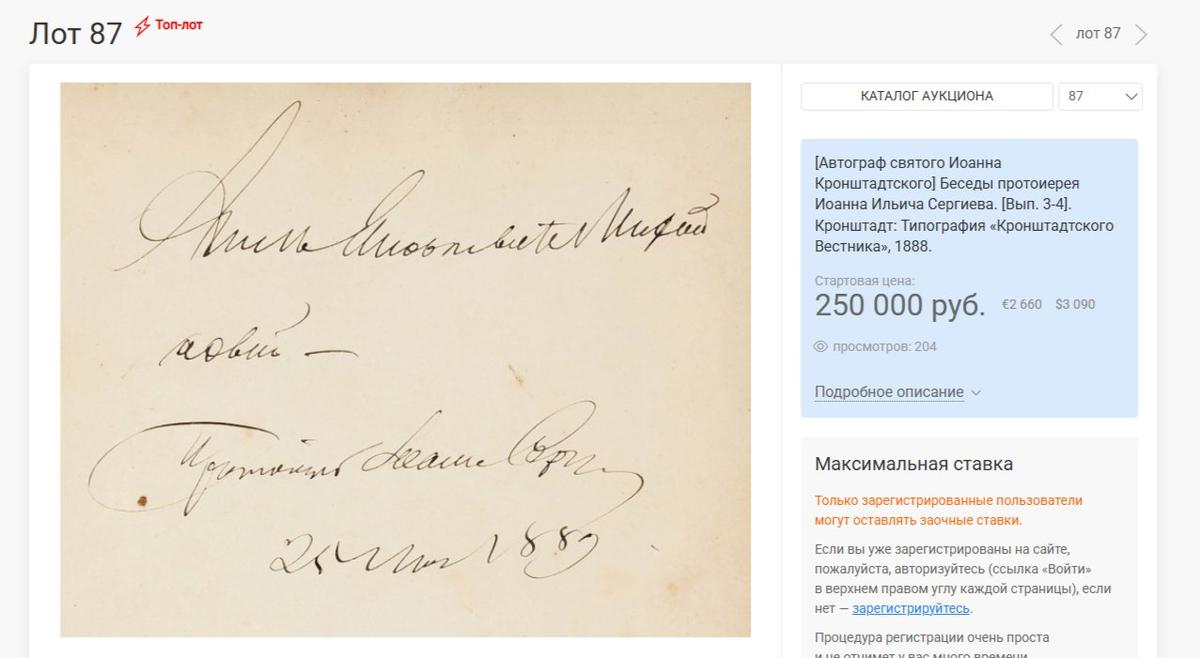 Лот 87
Топ-лот
лот 87
КАТАЛОГ АУКЦИОНА
87
[Автограф святого Иоанна
Кронштадтского] Беседы протоиерея
Иоанна Ильича Сергиева. [Вып. 3-4].
Кронштадт: Типография «Кронштадтского
Вестника», 1888.
Стартовая цена:
250 000 руб. €2 660 $3 090
просмотров: 204
Подробное описание
Максимальная ставка
Только зарегистрированные пользователи
могут оставлять заочные ставки.
Если вы уже зарегистрированы на сайте,
пожалуйста, авторизуйтесь (ссылка «Войти»
в верхнем правом углу каждой страницы), если
нет — зарегистрируйтесь.
Процедура регистрации очень проста
и не отнимет у вас много времени